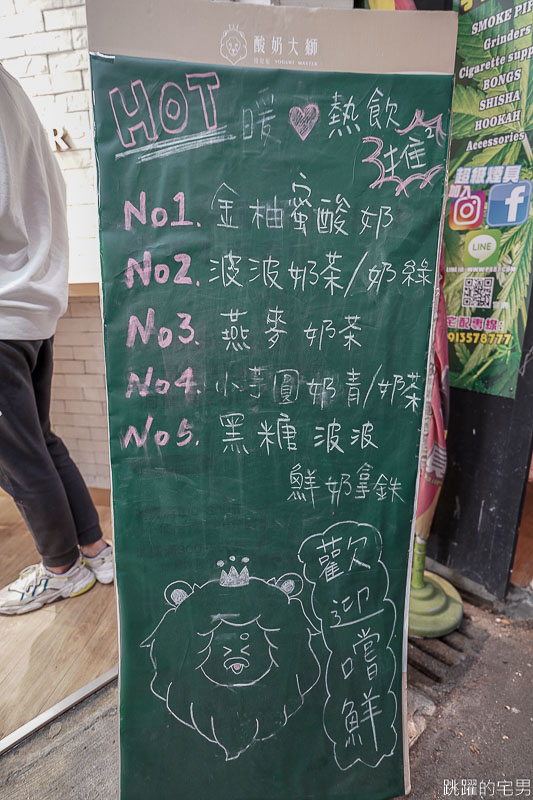 酸奶大獅
YOGURT MASTER
HOT 暖♥熱飲
推
No1. 金柚蜜酸奶
No2. 波波奶茶/奶綠
No3. 燕麥奶茶
No4. 小芋圓奶青/奶茶
No5. 黑糖波波
鮮奶拿鉄
歡迎嚐鮮
SMOKE PIP
Grinders
Cigarette supp
BONGS
SHISHA
HOOKAH
Accessories
超級煙具
加入
LINE
宅配專線:
913578777
R
跳躍的宅男